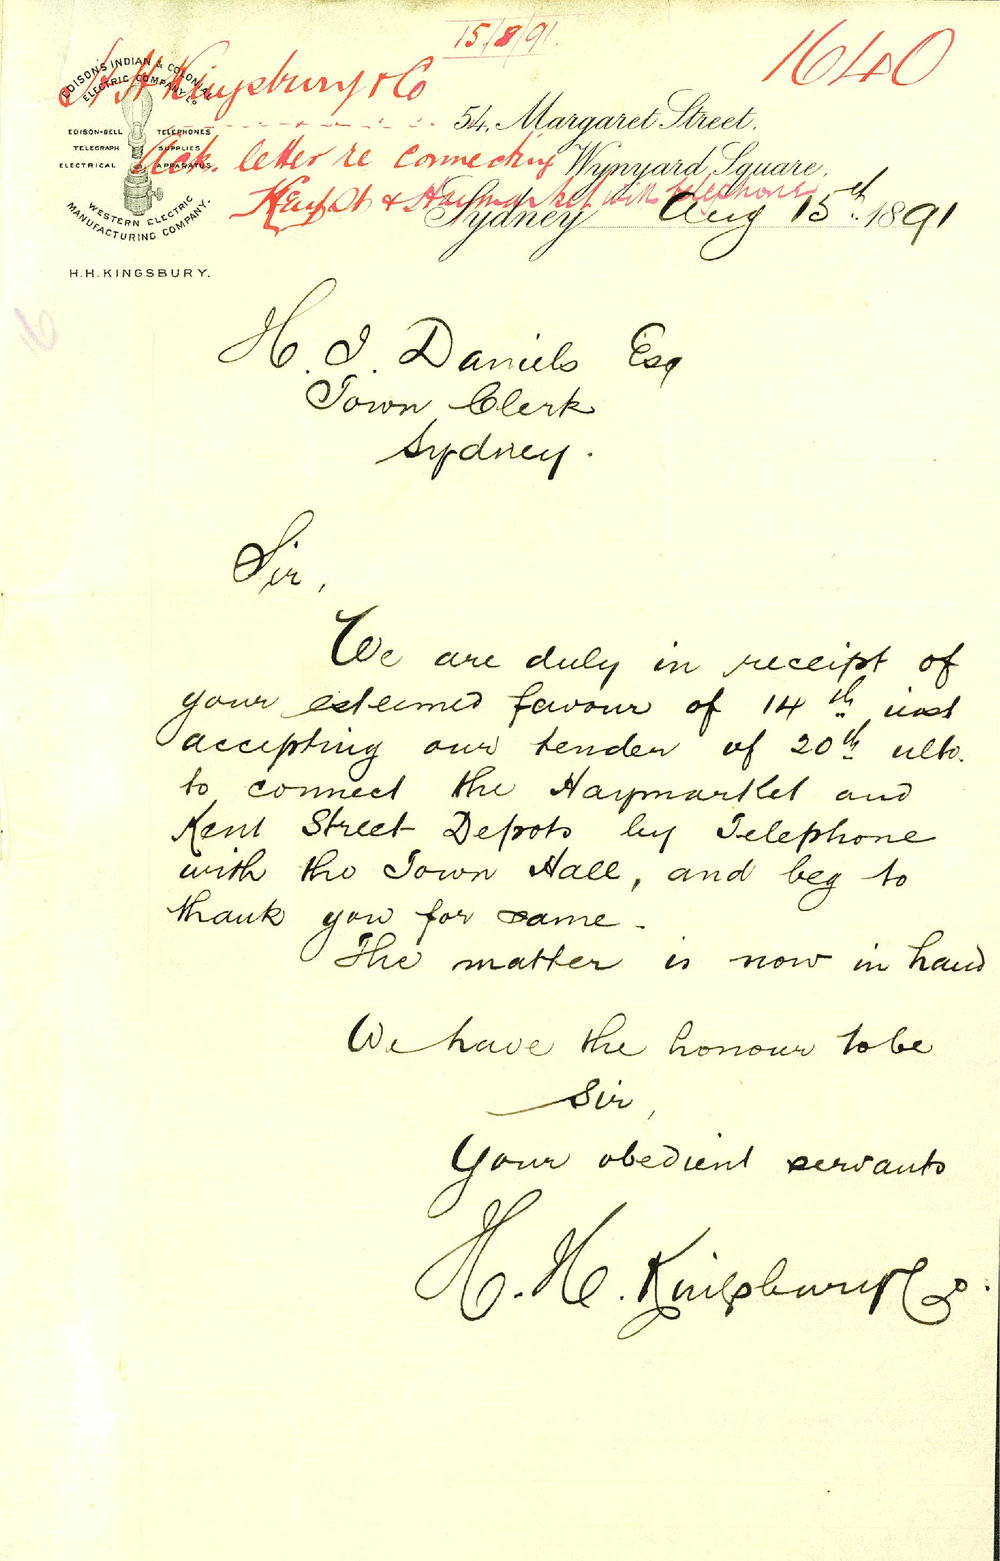 15/8/91.
1640
H H Kingsbury & Co
Ack. letter re connecting
Kent St & Haymarket with telephone
EDISON'S INDIAN & COLONIAL
ELECTRIC COMPANY Ld
EDISON-BELL TELEPHONES
TELEGRAPH SUPPLIES
ELECTRICAL APPARATUS
WESTERN ELECTRIC
MANUFACTURING COMPANY.
H.H. KINGSBURY.
54, Margaret Street,
Wynyard Square,
Sydney Aug 15th 1891
16
H. J. Daniels Esq
Town Clerk
Sydney.
Sir,
We are duly in receipt of
your esteemed favour of 14th inst
accepting our tender of 20th ulto.
to connect the Haymarket and
Kent Street Depots by Telephone
with the Town Hall, and beg to
thank you for same.
The matter is now in hand
We have the honour to be
Sir,
Your obedient servants
H. H. Kingsbury & Co.